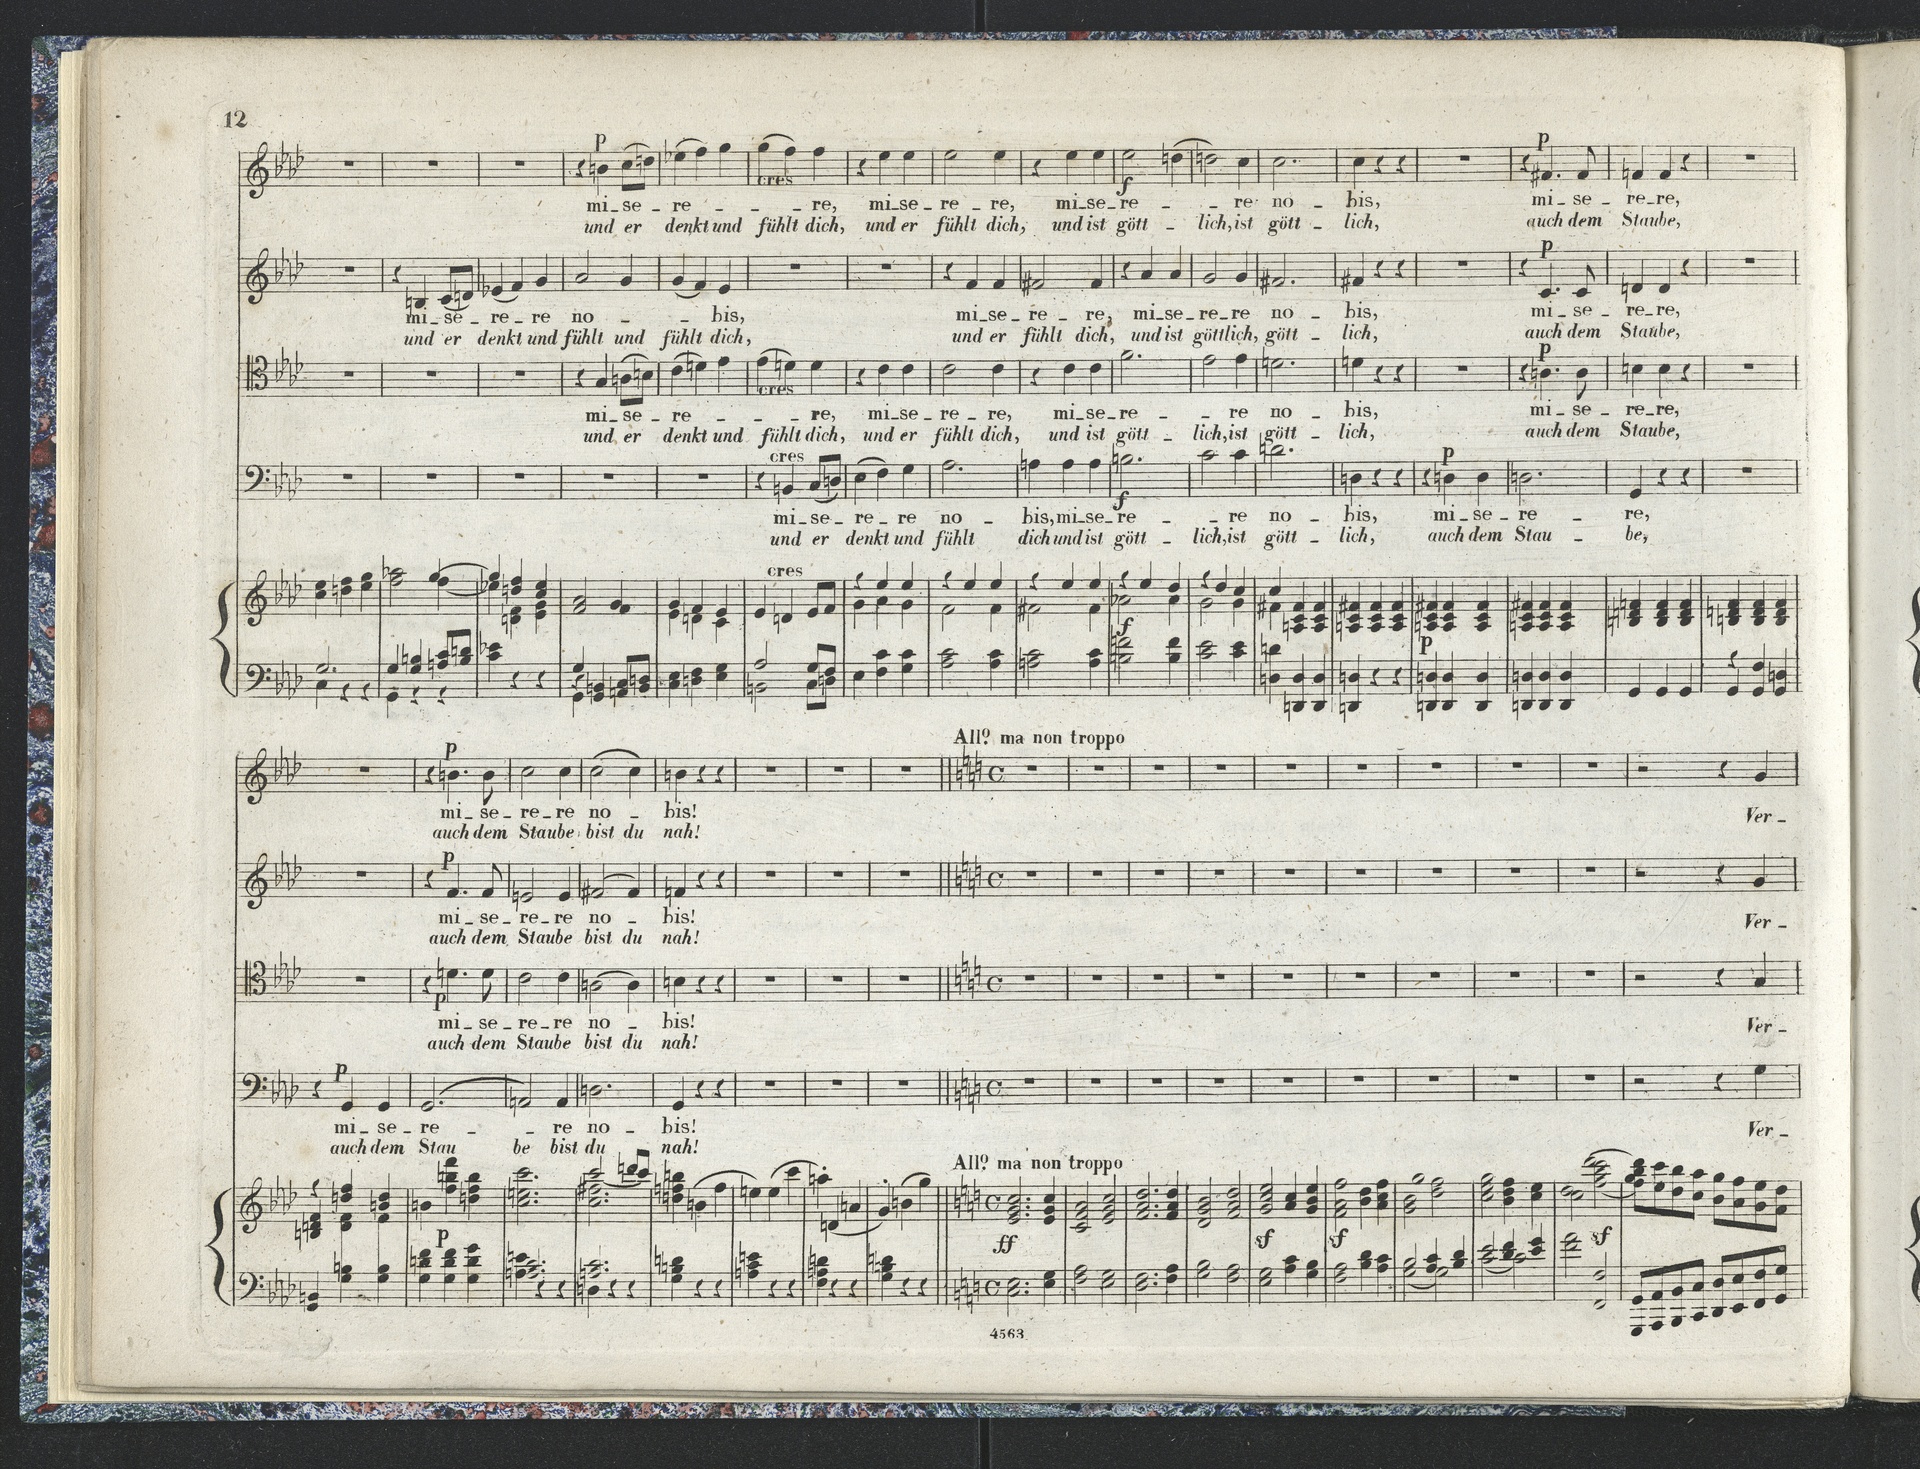 12
p
cres
f
p
mi_se_re_ _ _ _re, mi_se_re_re, mi_se_re_ _ re no_ bis, mi_se_re_re,
und er denkt und fühlt dich, und er fühlt dich, und ist gött_ lich, ist gött_ lich, auch dem Staube,
p
mi_se_re_re no_ _ _bis, mi_se_re_re, mi_se_re_re no_ bis, mi_se_re_re,
und er denkt und fühlt und fühlt dich, und er fühlt dich, und ist göttlich, gött_ lich, auch dem Staube,
p
cres
mi_se_re_ _ _ _re, mi_se_re_re, mi_se_re_ _ re no_ bis, mi_se_re_re,
und er denkt und fühlt dich, und er fühlt dich, und ist gött_ lich, ist gött_ lich, auch dem Staube,
cres
p
f
mi_se_re_re no_ bis, mi_se_re_ _ re no_ bis, mi_se_re_ re,
und er denkt und fühlt dich und ist gött_ lich, ist gött_ lich, auch dem Stau_ be,
cres
f
p
All⁰. ma non troppo
p
mi_se_re_re no_ bis! 
auch dem Staube bist du nah!
Ver_
p
mi_se_re_re no_ bis!
auch dem Staube bist du nah!
Ver_
p
mi_se_re_re no_ bis!
auch dem Staube bist du nah!
Ver_
p
mi_se_re_ _ re no_ bis!
auch dem Stau be bist du nah!
Ver_
All⁰. ma non troppo
p
ff
sf
sf
sf
4563